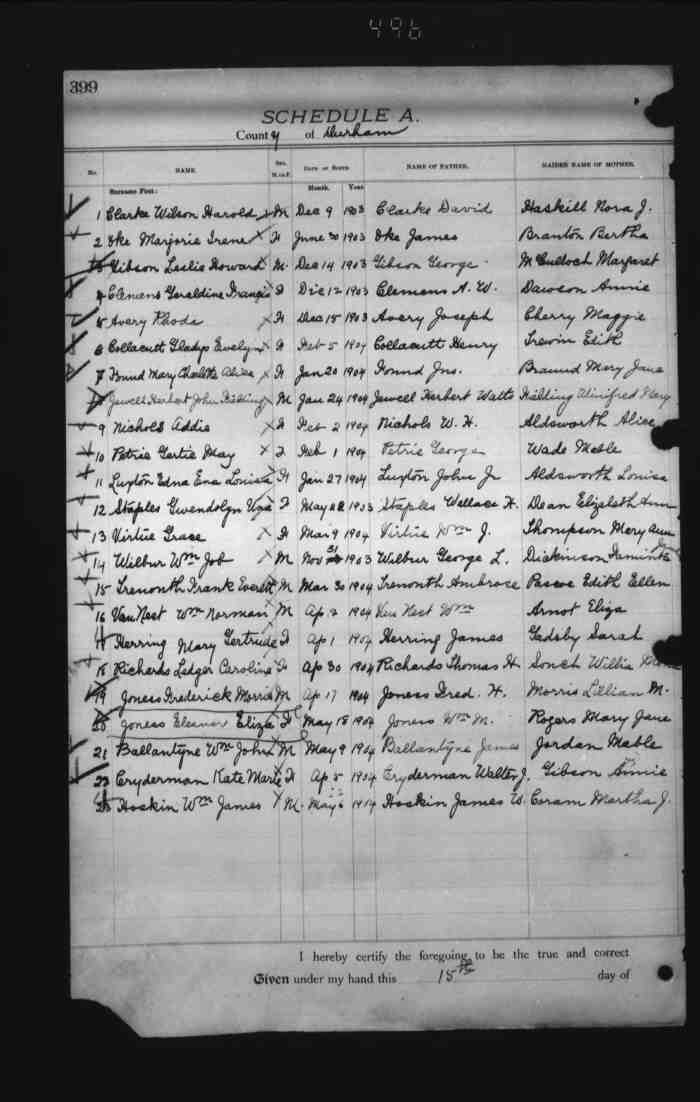 496
399
SCHEDULE A.
County of Durham
No. NAME. SEX. M. or F. DATE OF BIRTH. NAME OF FATHER. MAIDEN NAME OF MOTHER.
Surname First: Month. Year.
1 Clarke Wilson Harold M Dec 9 1903 Clarke David Haskill Nora J.
2 Oke Marjorie Irene F June 30 1903 Oke James Branton Bertha
3 Gibson Leslie Howard M. Dec 14 1903 Gibson George McCulloch Margaret
4 Clemens Geraldine Francis F Dec 12 1903 Clemens A. W. Dawson Annie
5 Avery Rhoda F Dec 15 1903 Avery Joseph Cherry Maggie
6 Collacutt Gladys Evelyn F Feb 5 1904 Collacutt Henry Trewin Edith
7 Found Mary Charlotte F Jan 20 1904 Found Jns. Braund Mary Jane
8 Jewell Herbert John M Jan 24 1904 Jewell Herbert Watts Winifred Mary
9 Nichols Addie F Feb 2 1904 Nichols W. H. Aldsworth Alice
10 Petrie Gertie May F Feb 1 1904 Petrie George Wade Meble
11 Luxton Edna Eva Louisa F Jan 27 1904 Luxton John Jr Aldsworth Louisa
12 Staples Gwendolyn F May 1903 Staples Wallace H. Dean Elizabeth Ann
13 Virtue Grace F Mar 9 1904 Virtue Wm J. Thompson Mary Ann
14 Wilbur Wm Job M Nov 1903 Wilbur George L. Dickinson
15 Tremonth Frank Everett M Mar 30 1904 Tremonth Ambrose Pascoe Edith Ellen
16 VanNest Wm Norman M Ap 2 1904 Van Nest Wm Arnot Eliza
17 Herring Mary Gertrude F Ap 1 1904 Herring James Gadsby Sarah
18 Richards Ledger Caroline F Ap 30 1904 Richards Thomas H Sonch Willis
19 Joness Frederick Morris M Ap 17 1904 Joness Fred. H. Morris Lillian M.
20 Joness Eleanor Eliza F May 18 1904 Joness Wm M. Rogers Mary Jane
21 Ballantyne Wm John M May 9 1904 Ballantyne James Jordan Mable
22 Cryderman Kate Marie F Ap 5 1904 Cryderman Walter J. Gibson Annie
23 Hoskin Wm James M. May 6 1904 Hoskin James W. Coram Martha J.
I hereby certify the foregoing to be the true and correct
Given under my hand this 15th day of